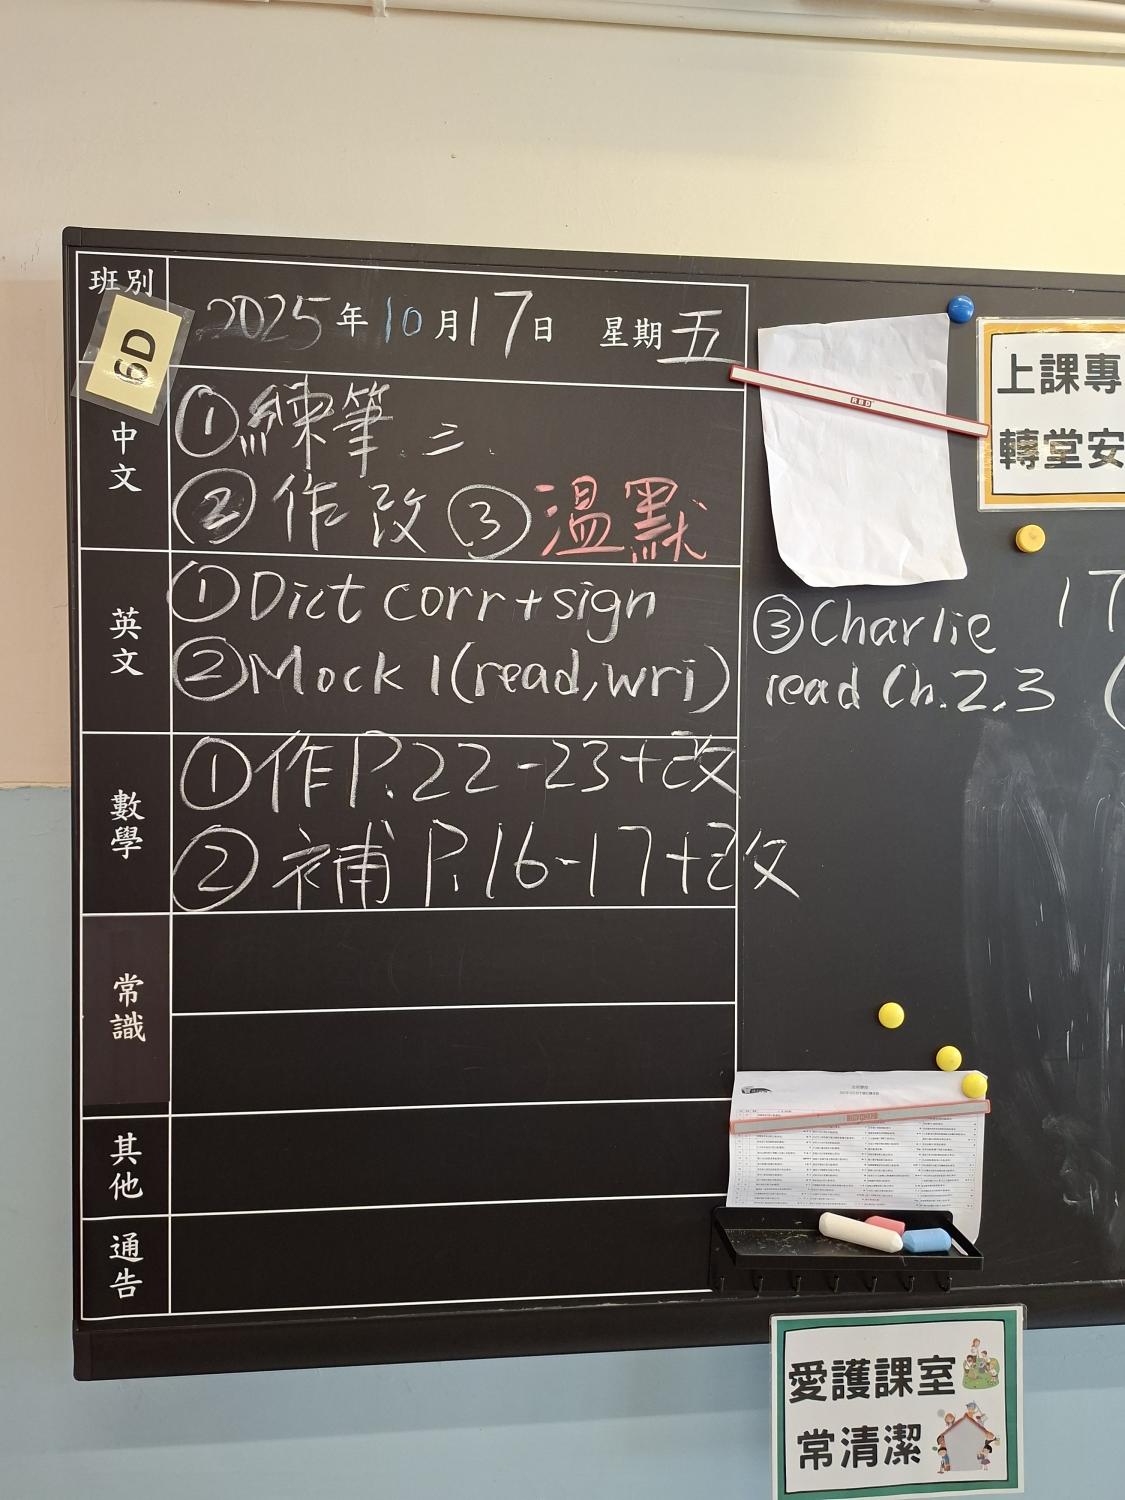 班別
6D
2025年10月17日 星期五
中文
①練筆 三
②作改 ③溫默
英文
①Dict corr+sign
②Mock 1(read,wri)
③Charlie
read Ch.2,3
17
(
數學
①作P.22-23+改
②補P.16-17+改
常識
其他
通告
上課專
轉堂安
愛護課室
常清潔